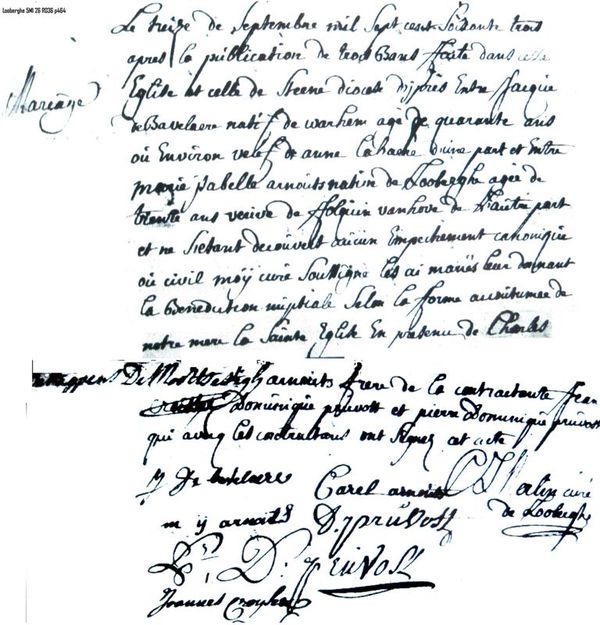 Looberghe SMI 26 R036 p464
Mariage
Le treize de Septembre mil Sept cent Soisante trois
apres la publication de trois Bans faite dans cette
Eglise et celle de Steene diocese d'ypres Entre Jacque
de Bavelaere natif de warhem agé de quarante ans
où Environ veuf de anne d'une part et Entre
marie Isabelle arnouts native de Looberghe agée de
trente ans veuve de folquin vanhove de L'autre part
et ne S'etant decouvert aucun Empechement canonique
où civil moÿ curé Soussigné les ai mariés leur donnant
la Benediction nuptiale Selon la forme accoutumée de
notre mere la Sainte Eglise En presence de Charles
arnouts frere de la contractante Jean
Dominique pruvost et pierre Dominique pruvost
qui avec les contractans ont Signez cet acte
J De bavelaere
Carel arnouts
curé
de Looberghe
m ij arnouts
D. pruvost
D. pruvost
Joannes